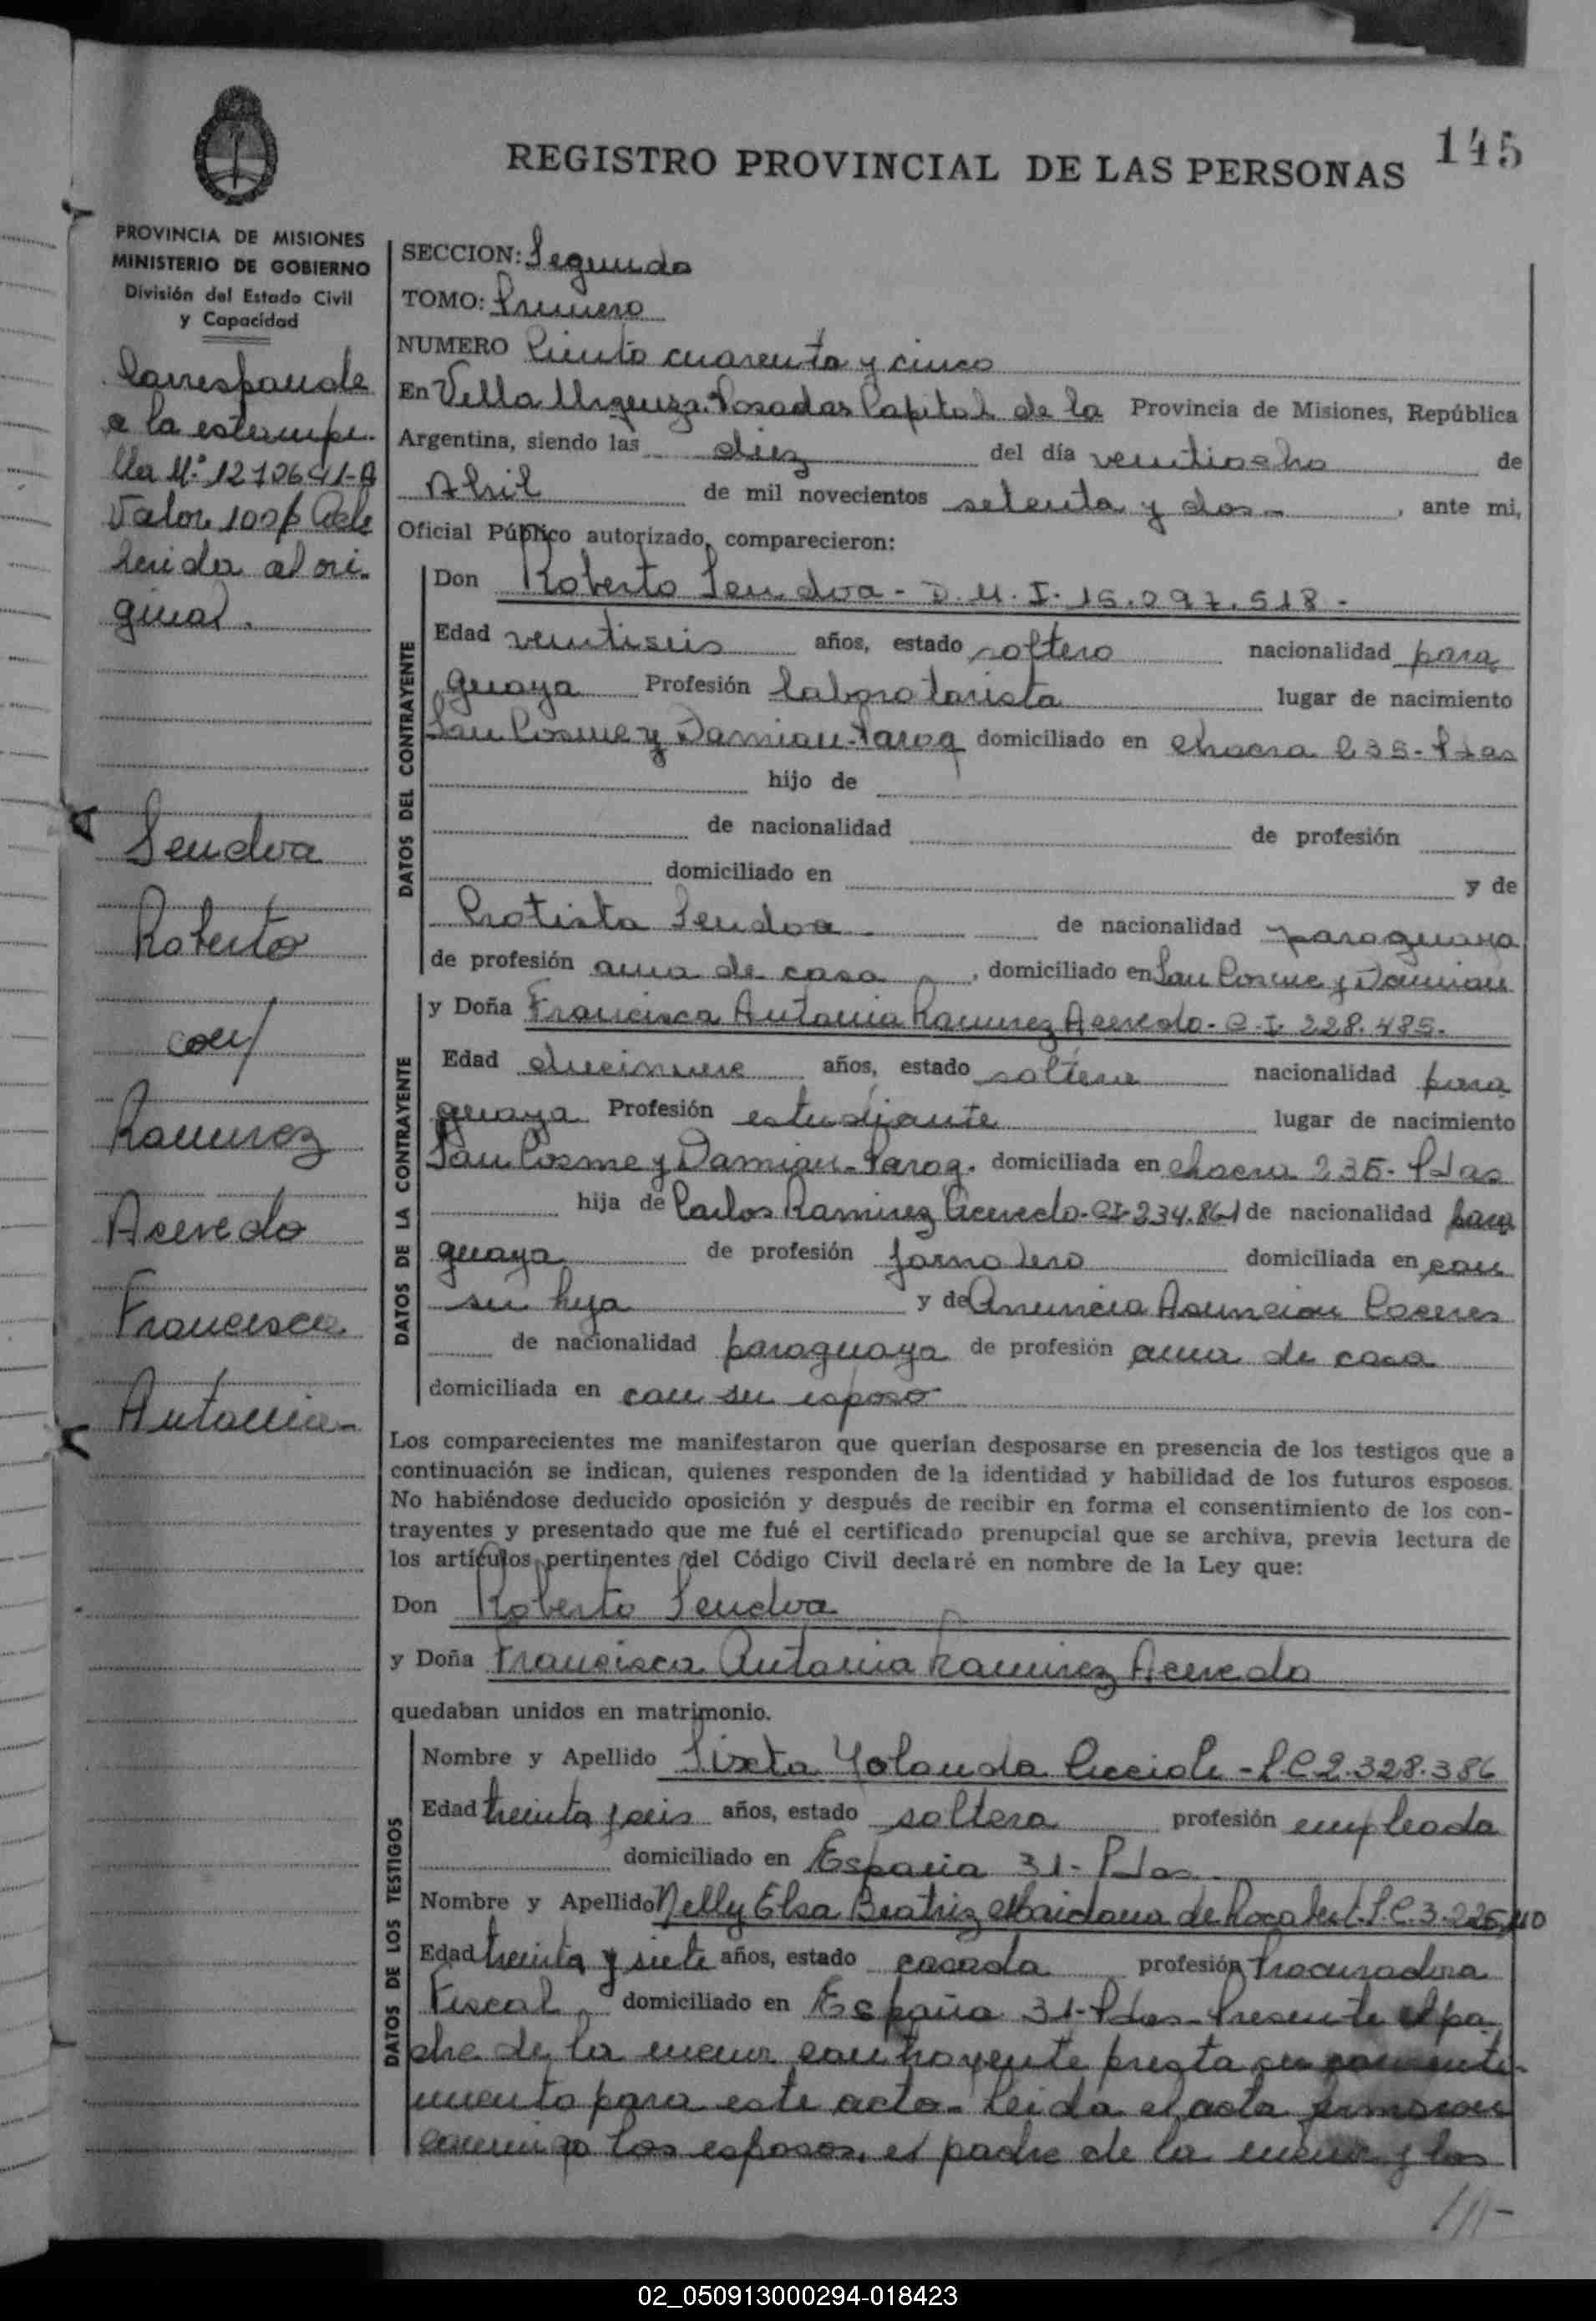 145
REGISTRO PROVINCIAL DE LAS PERSONAS
PROVINCIA DE MISIONES
MINISTERIO DE GOBIERNO
División del Estado Civil
y Capacidad
Corresponde
a la estampi-
lla Nº 1210641-A
Valor 100$ Adhe
rida al ori-
ginal.
Sendoa
Roberto
con/
Ramirez
Acevedo
Francisca
Antonia-
SECCION: Segunda
TOMO: Primero
NUMERO Ciento cuarenta y cinco
En Villa Urquiza. Posadas Capital de la Provincia de Misiones, República
Argentina, siendo las diez del día veintiocho de
Abril de mil novecientos setenta y dos-, ante mi,
Oficial Público autorizado, comparecieron:
DATOS DEL CONTRAYENTE
Don Roberto Sendoa - D.N.I. 15.097.518-
Edad veintiseis años, estado soltero nacionalidad para
guaya Profesión laboratorista lugar de nacimiento
San Cosme y Damian-Parag domiciliado en chacra 235-Pdas
hijo de
de nacionalidad de profesión
domiciliado en y de
Protista Sendoa de nacionalidad paraguaya
de profesión ama de casa, domiciliado en San Cosme y Damian
DATOS DE LA CONTRAYENTE
y Doña Francisca Antonia Ramirez Acevedo- C.I. 228.485-
Edad diecinueve años, estado soltera nacionalidad para
guaya Profesión estudiante lugar de nacimiento
San Cosme y Damian-Parag. domiciliada en chacra 235-Pdas
hija de Carlos Ramirez Acevedo-CI-234.861 de nacionalidad para
guaya de profesión jornalero domiciliada en con
su hija y de Anuncia Asuncion Caceres
de nacionalidad paraguaya de profesión ama de casa
domiciliada en con su esposo
Los comparecientes me manifestaron que querían desposarse en presencia de los testigos que a
continuación se indican, quienes responden de la identidad y habilidad de los futuros esposos.
No habiéndose deducido oposición y después de recibir en forma el consentimiento de los con-
trayentes y presentado que me fué el certificado prenupcial que se archiva, previa lectura de
los artículos pertinentes del Código Civil declaré en nombre de la Ley que:
Don Roberto Sendoa
y Doña Francisca Antonia Ramirez Acevedo
quedaban unidos en matrimonio.
DATOS DE LOS TESTIGOS
Nombre y Apellido Sixta Yolanda - L.C.2.328.386
Edad treinta y seis años, estado soltera profesión empleada
domiciliado en España 31-Pdas.
Nombre y Apellido Nelly Elsa Beatriz Maidana de L.C.3.
Edad treinta y siete años, estado casada profesión Procuradora
Fiscal, domiciliado en España 31-Pdas-Presente el pa
dre de la menor contrayente presta su consenti-
miento para este acto- Leida el acta firmaron
conmigo los esposos, el padre de la menor y los
///-
02_050913000294-018423